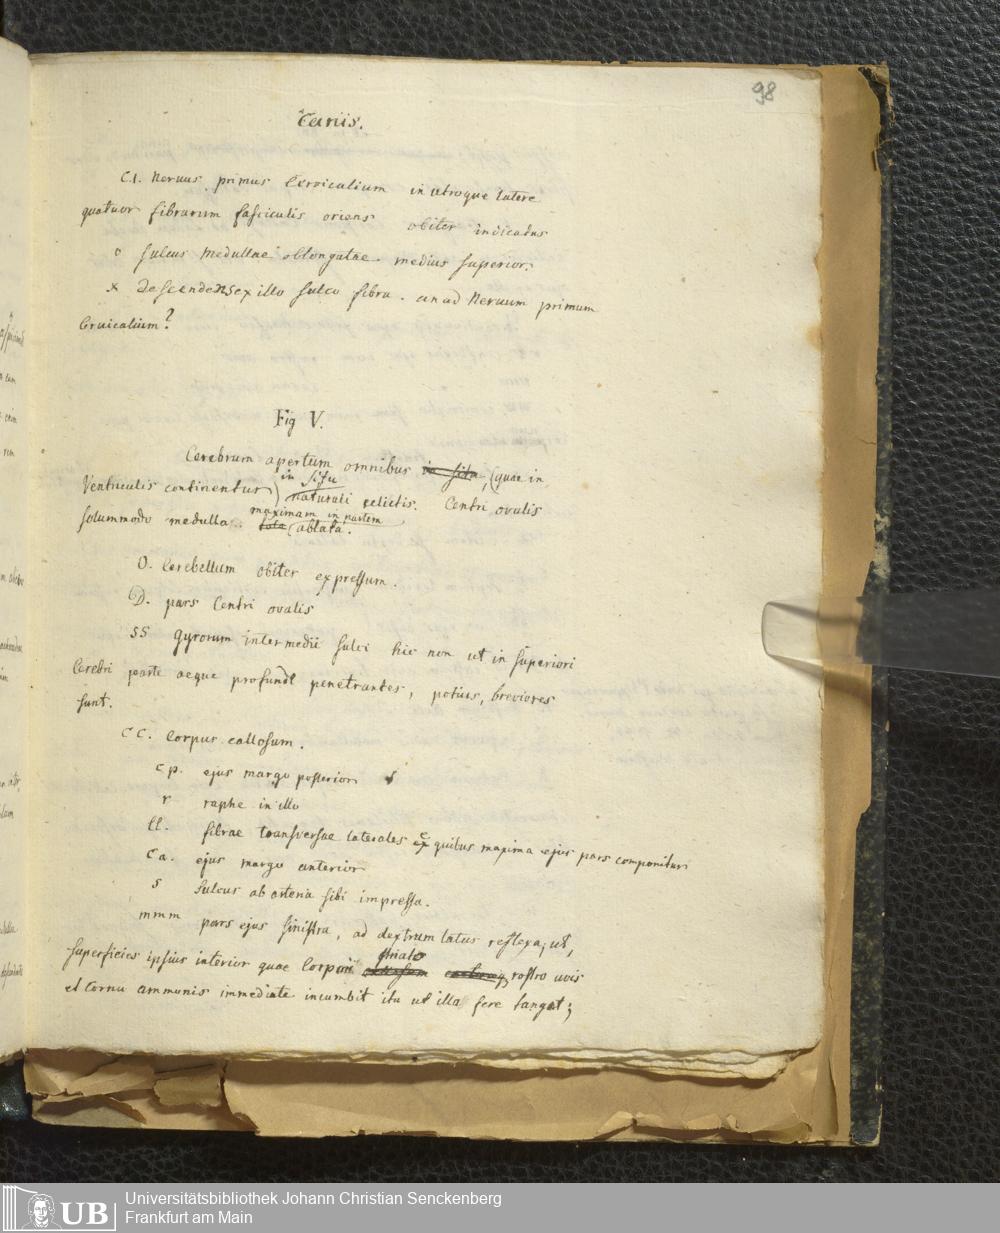 98
taniis.
C.1. Nervus primus Cervicalium in utroque latere
quatuor fibrarum fasciculis oriens obiter indicatus
o sulcus Medullae oblongatae medius superior.
x descendens ex illo sulco fibra. an ad Nervum primum
Cervicalium?
Fig V.
Cerebrum apertum omnibus in situ, (quae in
Ventriculis continentur) in situ naturali relictis. Centri ovalis
solummodo medulla tota maximam in partem ablata.
O. Cerebellum obiter expressum.
D. pars Centri ovalis
SS gyrorum intermedii sulci hic non ut in superiori
Cerebri parte aeque profunde penetrantes, potius, breviores
sunt.
CC. Corpus callosum.
cp. ejus margo posterior
r raphe in illo
ll. fibrae transversae laterales ex quibus maxima ejus pars componitur
ca. ejus margo anterior
s sulcus ab arteria sibi impressa.
mmm pars ejus sinistra, ad dextrum latus reflexa, ut,
superficies ipsius interior quae Corpori striato rostro avis
et Cornu ammonis immediate incumbit ita ut illa fere tangat;
UB
Universitätsbibliothek Johann Christian Senckenberg
Frankfurt am Main